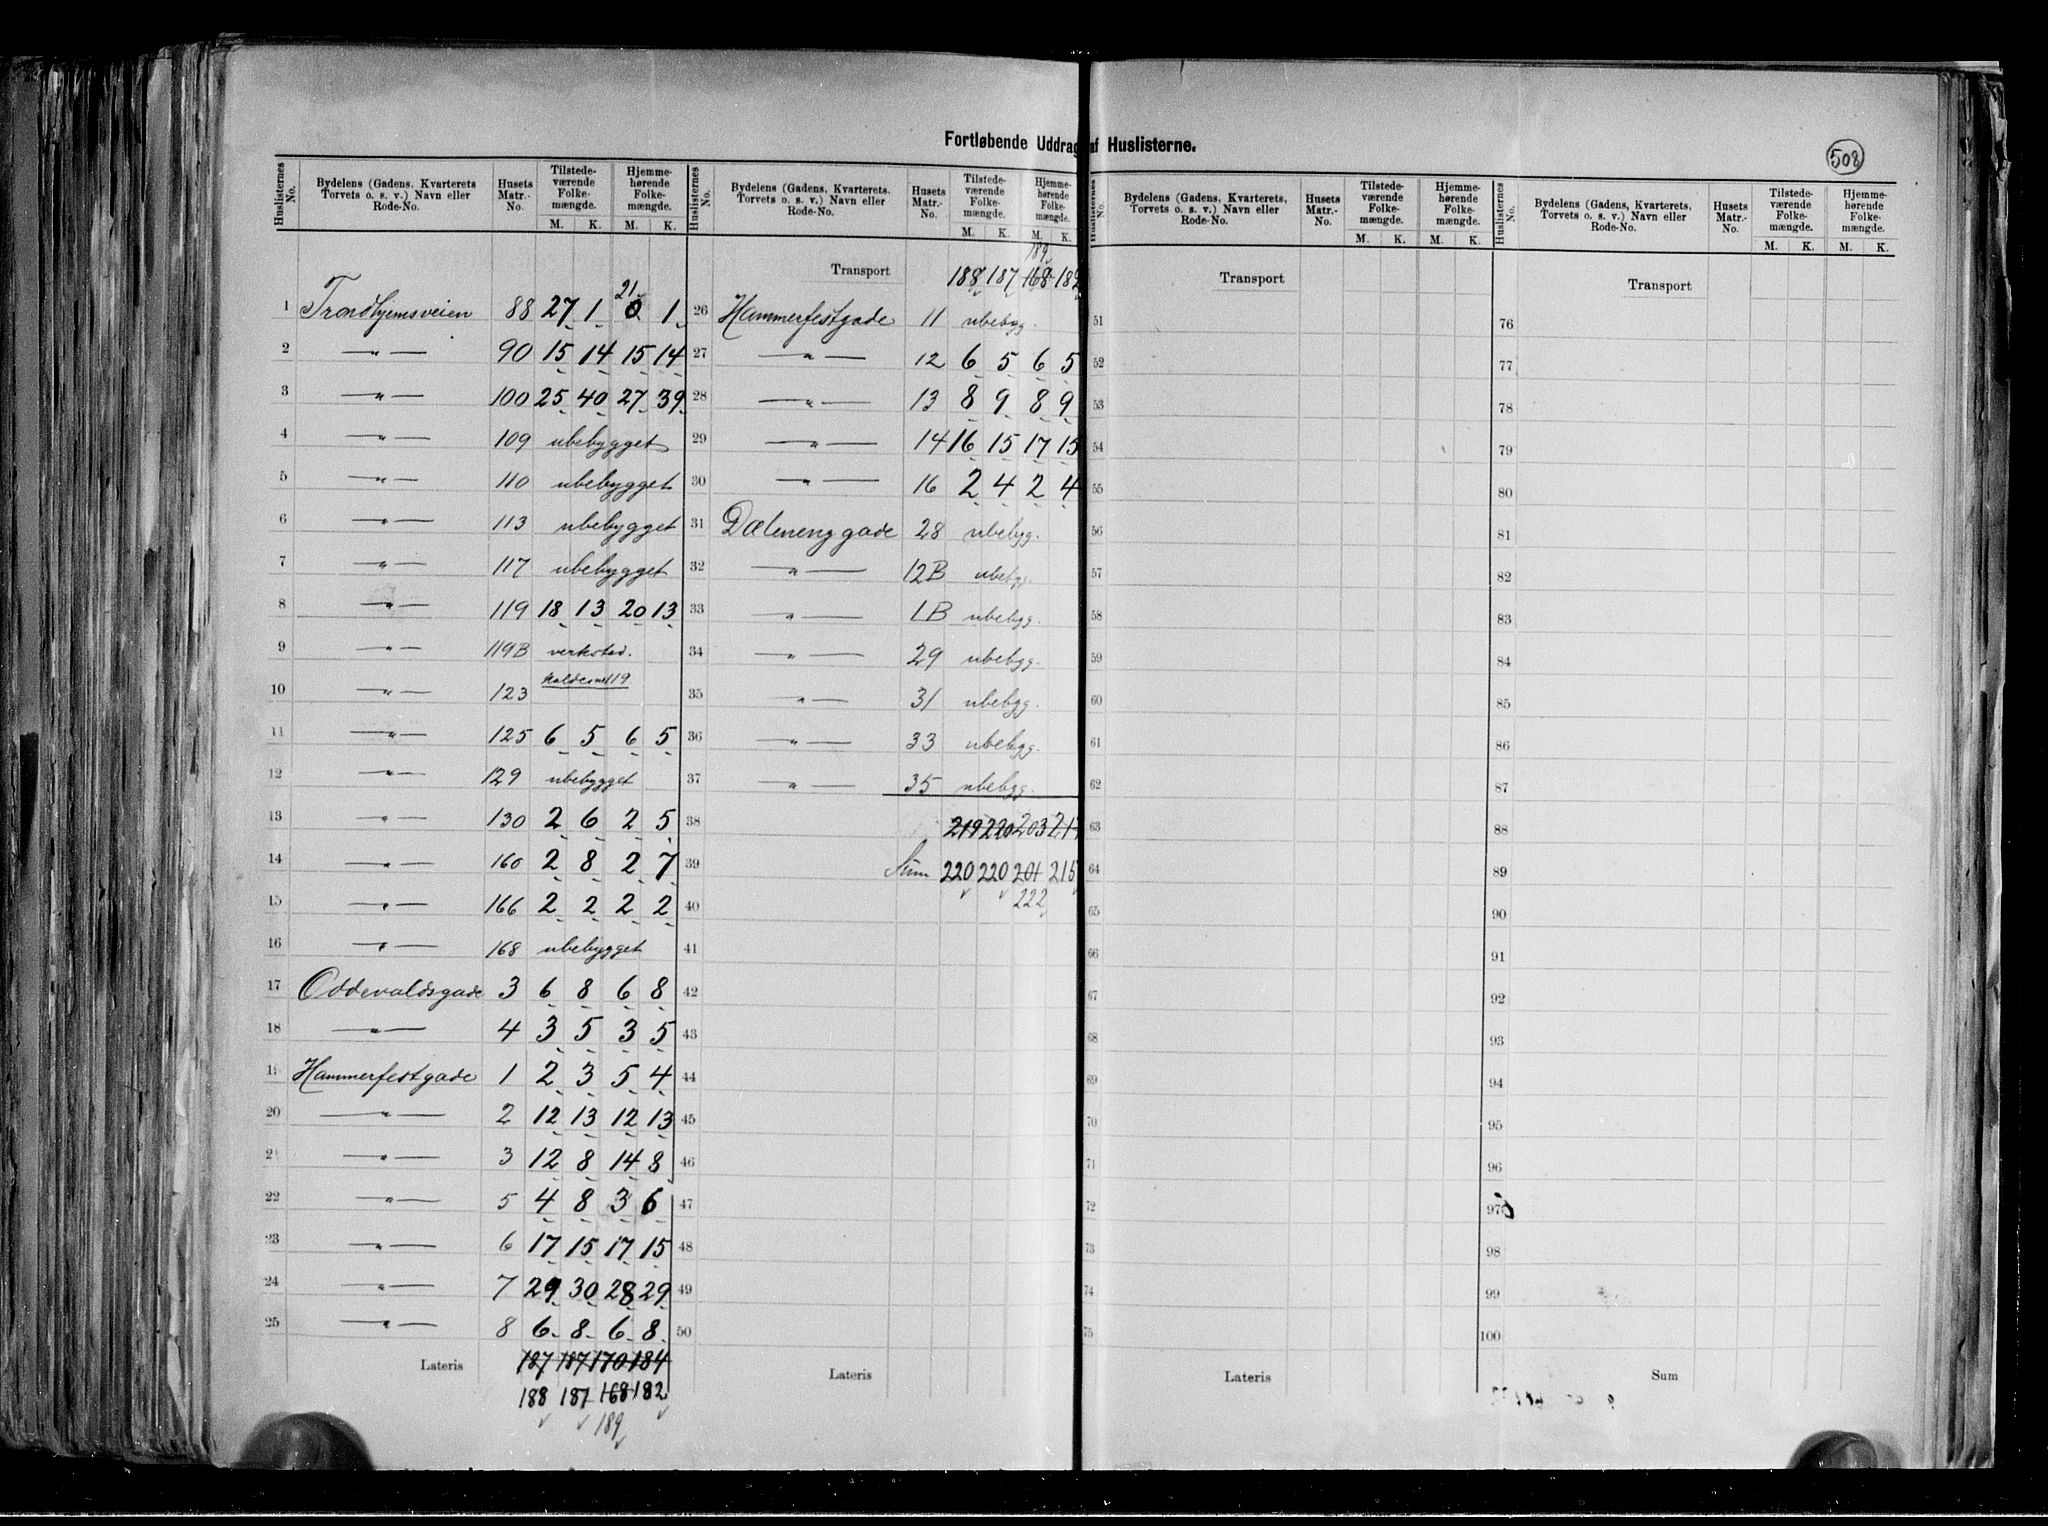 Fortløbende Uddrag af Huslisterne.
508
Huslisternes No. Bydelens (Gadens, Kvarterets Torvets o. s. v.) Navn eller Rode-No. Husets Matr.-No. Tilstedeværende Folkemængde. M. K. Hjemmehørende Folkemængde. M. K.
1 Trondhjemsveien 88 27 1 0 21 1
2 —"— 90 15 14 15 14
3 —"— 100 25 40 27 39
4 —"— 109 ubebygget
5 —"— 110 ubebygget
6 —"— 113 ubebygget
7 —"— 117 ubebygget
8 —"— 119 18 13 20 13
9 —"— 119B verksted.
10 —"— 123
11 —"— 125 6 5 6 5
12 —"— 129 ubebygget
13 —"— 130 2 6 2 5
14 —"— 160 2 8 2 7
15 —"— 166 2 2 2 2
16 —"— 168 ubebygget
17 Oddevaldsgade 3 6 8 6 8
18 —"— 4 3 5 3 5
19 Hammerfestgade 1 2 3 5 4
20 —"— 2 12 13 12 13
21 —"— 3 12 8 14 8
22 —"— 5 4 8 3 6
23 —"— 6 17 15 17 15
24 —"— 7 29 30 28 29
25 —"— 8 6 8 6 8
Lateris 187 187 170 184
188 187 168 182
189
Huslisternes No. Bydelens (Gadens, Kvarterets, Torvets o. s. v.) Navn eller Rode-No. Husets Matr.-No. Tilstedeværende Folkemængde. M. K. Hjemmehørende Folkemængde. M. K.
189
Transport 188 187 168 182
26 Hammerfestgade 11 ubebyg.
27 —"— 12 6 5 6 5
28 —"— 13 8 9 8 9
29 —"— 14 16 15 17 15
30 —"— 16 2 4 2 4
31 Dælenenggade 28 ubebyg.
32 —"— 12B ubebyg.
33 —"— 1B ubebyg.
34 —"— 29 ubebyg.
35 —"— 31 ubebyg.
36 —"— 33 ubebyg.
37 —"— 35 ubebyg.
38 219 220 203 217
39 Sum 220 220 201 215
40 222
41
42
43
44
45
46
47
48
49
50
Lateris
Huslisternes No. Bydelens (Gadens, Kvarterets, Torvets o. s. v.) Navn eller Rode-No. Husets Matr.-No. Tilstedeværende Folkemængde. M. K. Hjemmehørende Folkemængde. M. K.
Transport
51
52
53
54
55
56
57
58
59
60
61
62
63
64
65
66
67
68
69
70
71
72
73
74
75
Lateris
Huslisternes No. Bydelens (Gadens, Kvarterets, Torvets o. s. v.) Navn eller Rode-No. Husets Matr.-No. Tilstedeværende Folkemængde. M. K. Hjemmehørende Folkemængde. M. K.
Transport
76
77
78
79
80
81
82
83
84
85
86
87
88
89
90
91
92
93
94
95
96
97
98
99
100
Sum